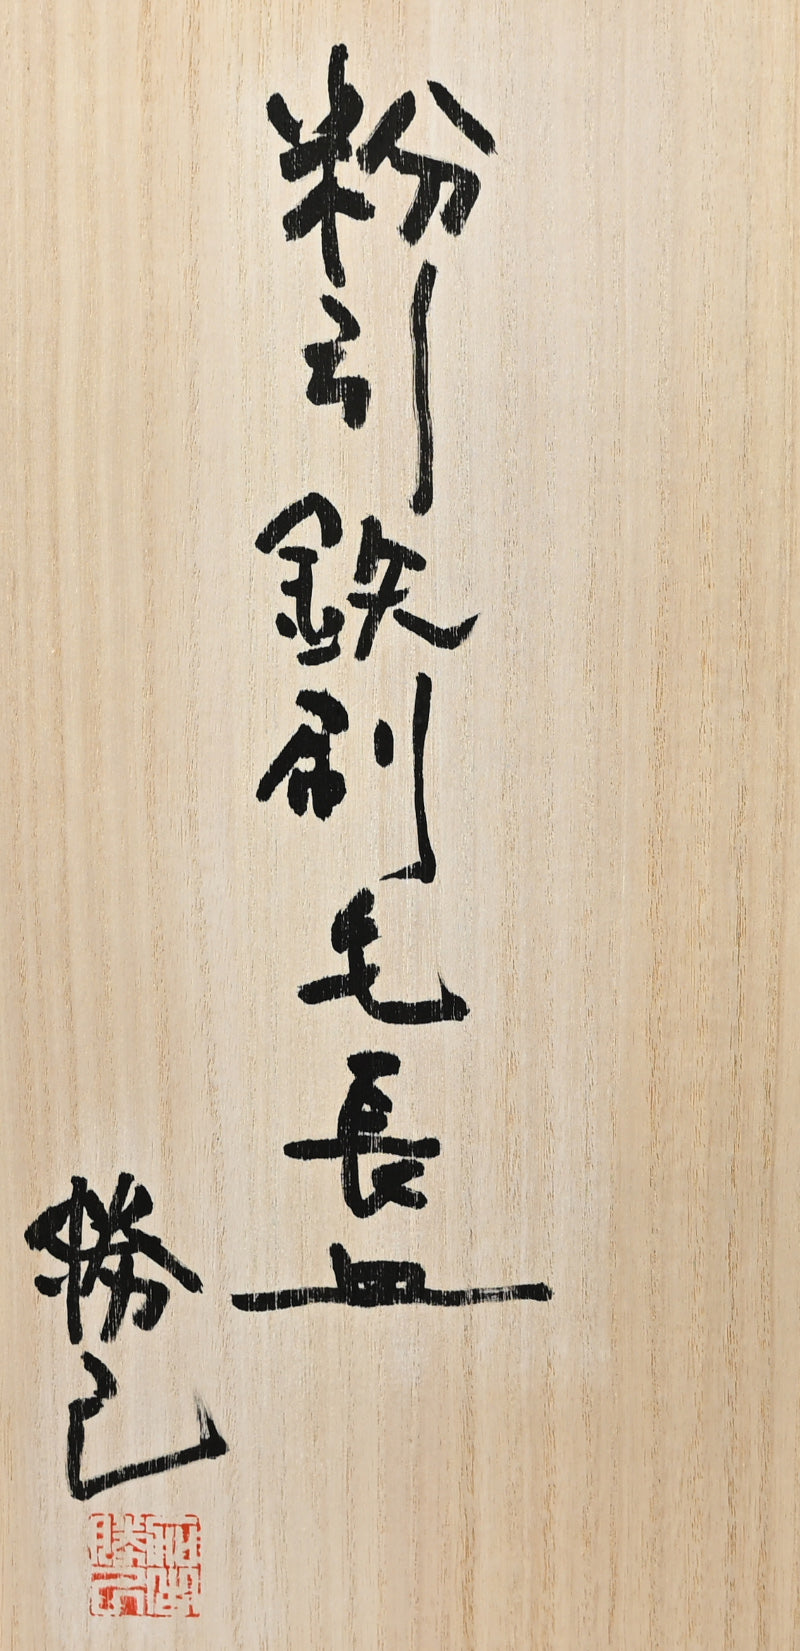 粉引鉄刷毛長皿
勝己